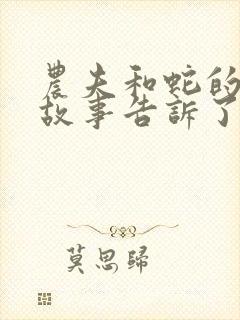 農夫和蛇的
故事告訴了
莫思歸